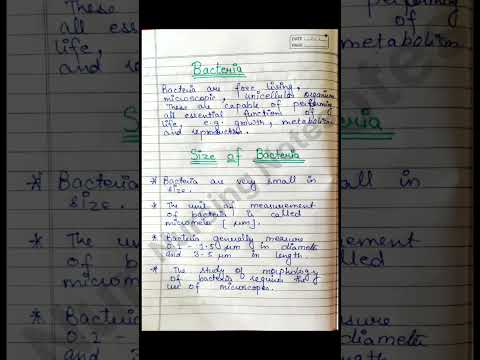 DATE
PAGE
Bacteria
Bacteria are free living,
microscopic, unicellular organism
These are capable of performing
all essential functions of
life, e.g. growth, metabolism
and reproduction.
Size of Bacteria
* Bacteria are very small in
size.
* The unit of measurement
of bacteria is called
micrometer [μm].
* Bacteria generally measure
0.2 - 1.5 μm in diameter
and 3-5 μm in length
* The study of morphology
of bacteria requires the
use of microscopes.